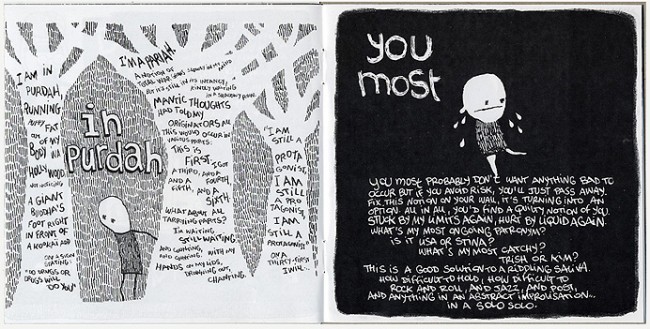 I AM IN
PURDAH,
RUNNING
FAT
OUT OF MY
BODY VIA
HOLLYWOOD
A GIANT
BUDDHA'S
FOOT RIGHT
IN FRONT OF
A KOOKAI AD
SIGN
STATING
"NO WINGS OR
DRUGS WILL
DO YOU"
in
purdah
I'M A PARIAH.
A NOTION OF
BUT ITS STILL IN ITS INFANCY,
KINDLY WAITING
IN A
MANTIC THOUGHTS
HAD TOLD MY
ORIGINATORS ALL
THIS WOULD OCCUR IN
VARIOUS PARTS.
THIS IS
FIRST, I GOT
A THIRD, AND
AND A FOURTH,
FIFTH, AND A
SIXTH
WHAT ABOUT ALL
PARTS?
I'M WAITING
STILL WAITING
AND CHANTING,
AND CHANTING. WITH MY
HANDS ON MY LIDS,
DRINKING OUT,
CHANTING.
"I AM
STILL A
PROTA
GONIST,
I AM
STILL
A PRO
TAGONIST
I AM
STILL A
PROTAGONIST"
ON A
THIRTY-FIRST
I WILL...
you
most
YOU MOST PROBABLY DON'T WANT ANYTHING BAD TO
OCCUR BUT IF YOU AVOID RISK, YOU'LL JUST PASS AWAY.
FIX THIS NOTION ON YOUR WALL, IT'S TURNING INTO AN
OPTION. ALL IN ALL, YOU'D FIND A GUILTY NOTION OF YOU.
STUCK BY MY LIMITS AGAIN, HURT BY LIQUID AGAIN.
WHAT'S MY MOST ONGOING PATRONYM?
IS IT USA OR STINA?
WHAT'S MY MOST CATCHY?
TRISH OR KIM?
THIS IS A GOOD SOLUTION TO A RIDDLING SALIVA.
HOW DIFFICULT TO HOLD, HOW DIFFICULT TO
ROCK AND ROLL, AND JAZZ, AND POST,
AND ANYTHING IN AN ABSTRACT IMPROVISATION...
IN A SOLO SOLO.